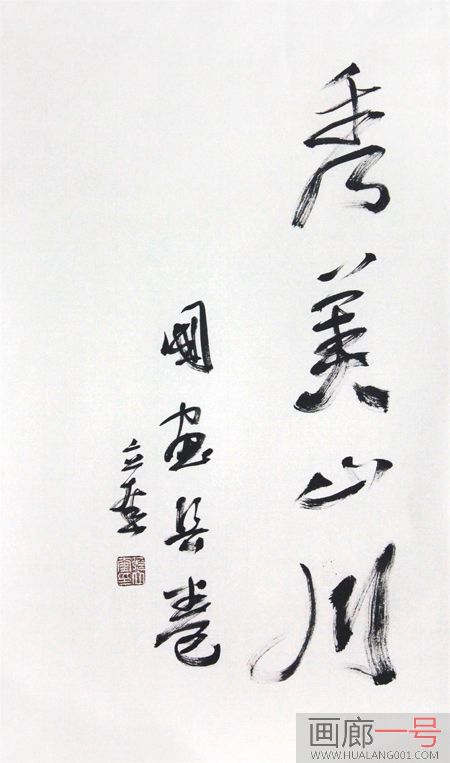 秀美山川
國畫長卷
立
画廊一号
WWW.HUALANG001.COM